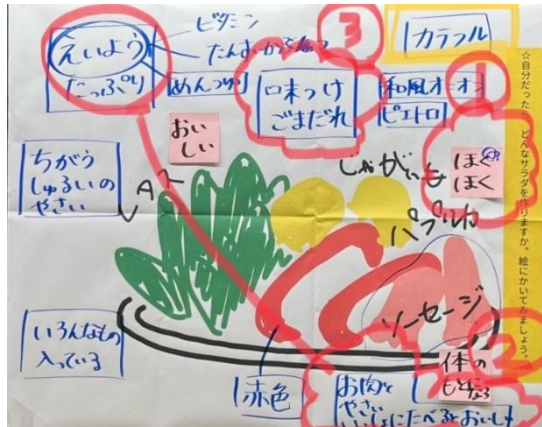 えいよう
たっぷり
ビタミン
めんつゆ
③
味つけ
ごまだれ
カラフル
和風オニオン
ピエトロ
①
おい
しい
じゃがいも
ほく
ほく
ちがう
しゅるいの
やさい
レタス
パプリカ
ソーセージ
いろんなもの
入っている
赤色
②
体の
もとになる
お肉と
やさい
いっしょにたべるとおいしい
☆自分だったら、どんなサラダを作りますか。絵にかいてみましょう。